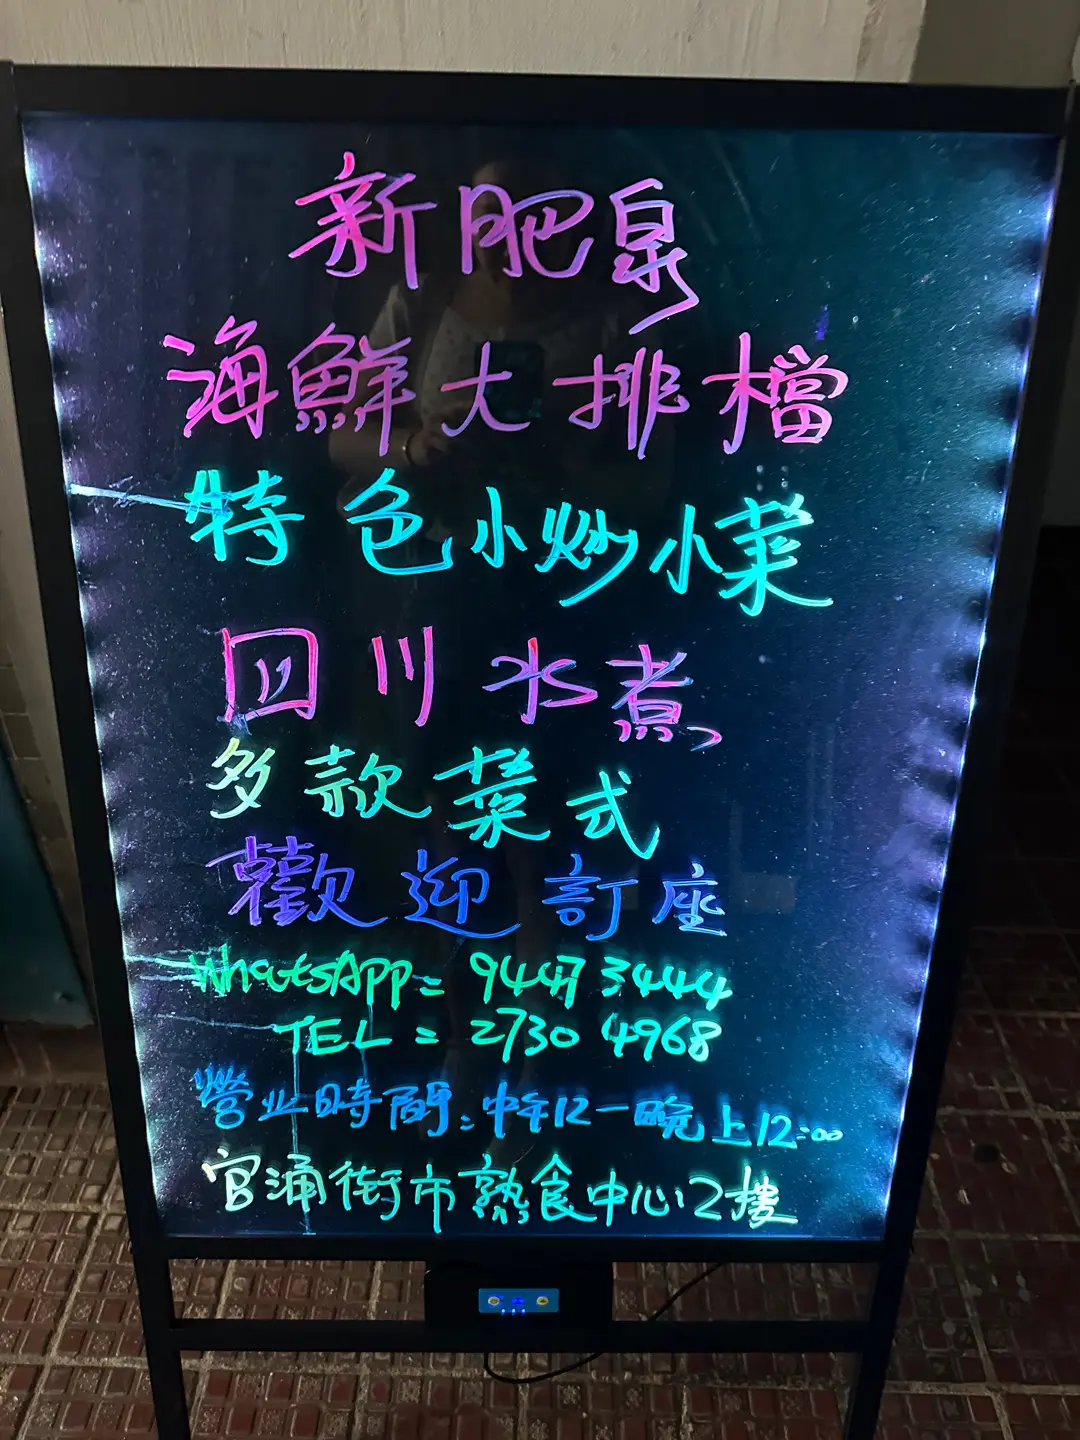 新肥泉
海鮮大排檔
特色小炒小菜
四川水煮
多款菜式
歡迎訂座
WhatsApp= 9447 3444
TEL = 2730 4968
營业時間:中午12一晚上12:00
官涌街市熟食中心2樓